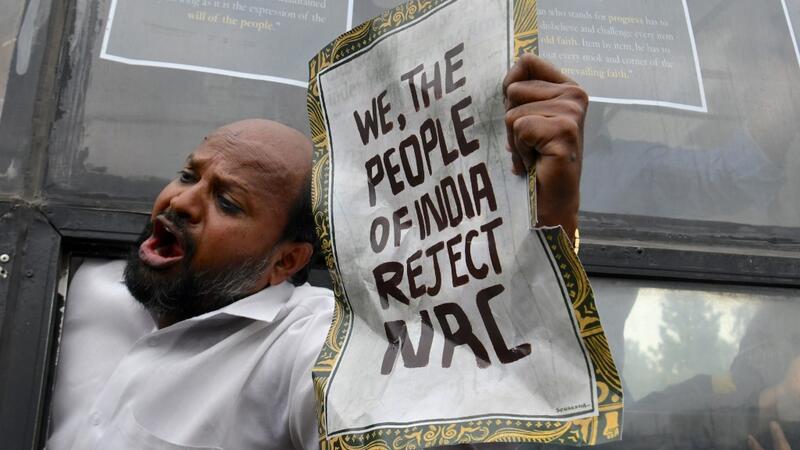 long as it is the expression of the
will of the people."
who stands for progress has to
disbelieve and challenge every
old faith. Item by item, he has to
every nook and corner of the
prevailing faith."
WE, THE
PEOPLE
OF INDIA
REJECT
NRC